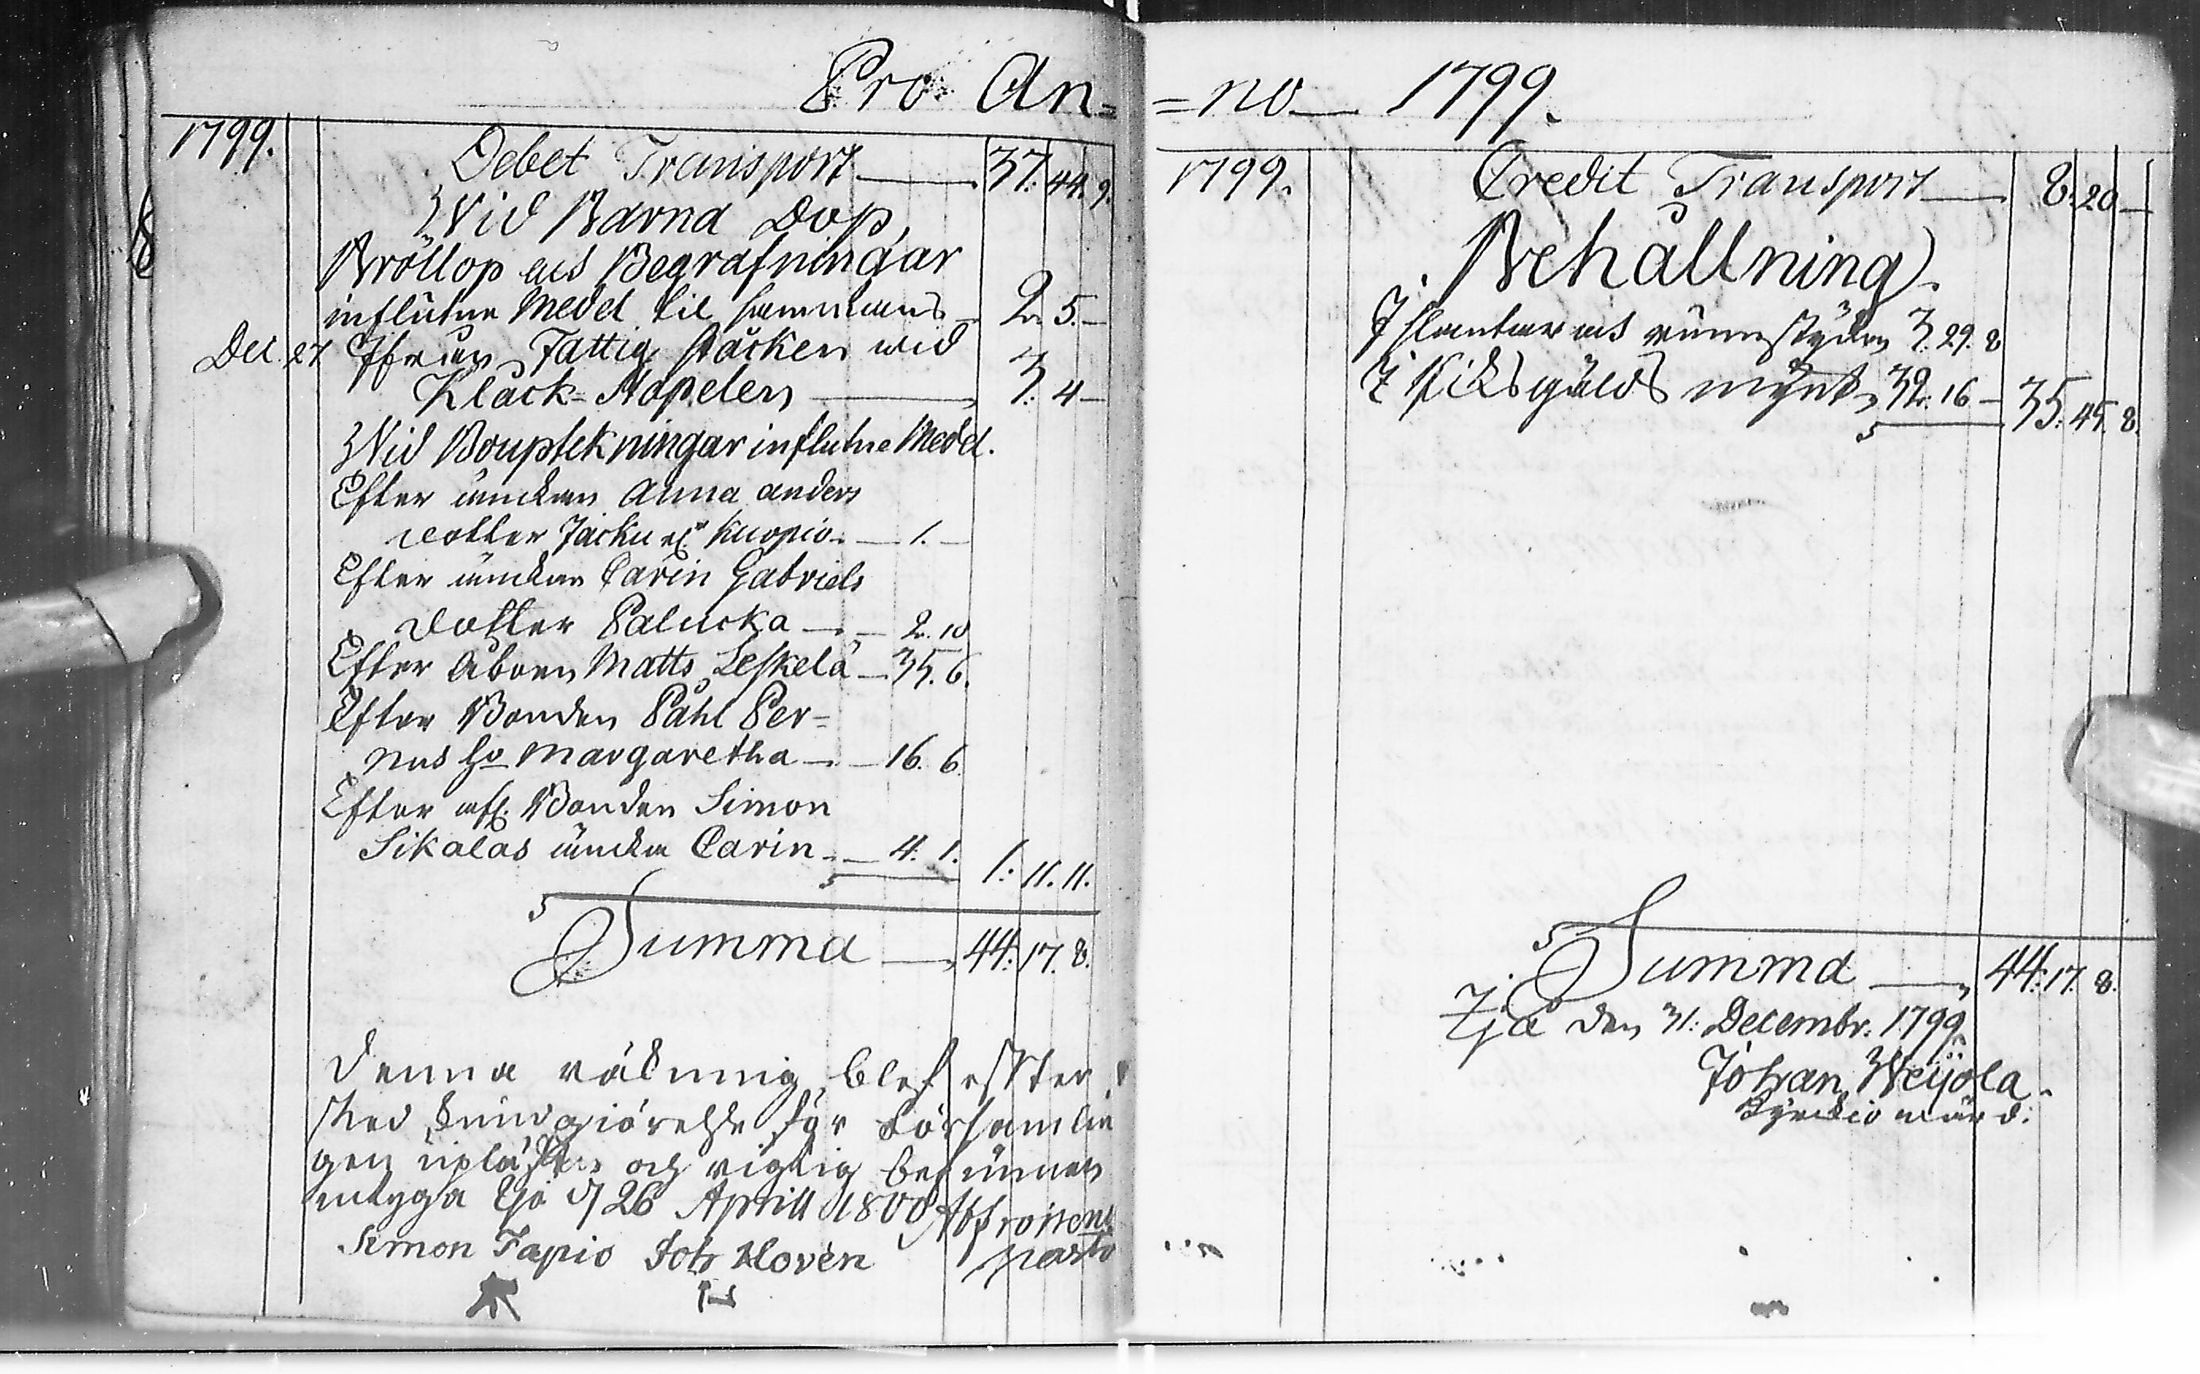 Pro An=
1799.
Debet Transport — 37: 44. 9.
Wid Barna Dop,
Bröllop och Begrafningar
influtne Medel til sammans — 2. 5. —
Dec. 27 Fattig Stocken wid
Klåck-Stapelen — 3: 4 —
Wid Bouptekningar influtne Medel.
Efter änckan Anna anders
dotter Jacku Kuopio — 1. —
Efter änckan Carin Gabriels
dotter Palucka — 2. 10
Efter Åboen Matts Leskelä — 35. 6.
Efter Bonden Påhl Per=
nus Margaretha — 16. 6.
Efter afl. Bonden Simon
Sikalas äncka Carin — 4. 1. 1: 11. 11.
Summa — 44: 17. 8.
Denna räkning blef efter
sked kundgiörelse för Församlin
gen upläsen och rigtig befunnen
intyga Ijo d 26 Aprill 1800
Simon Tapio Joh Hovèn
=no — 1799.
1799. Credit Transport — 8. 20 —
Behållning.
I slantar och runstycken 3. 29. 8
I Riksgälds mynt 32. 16 — 35: 45. 8.
Summa — 44: 17. 8.
Ijo den 31: Decembr. 1799.
Johan Weijola.
Kyrckio wärd: